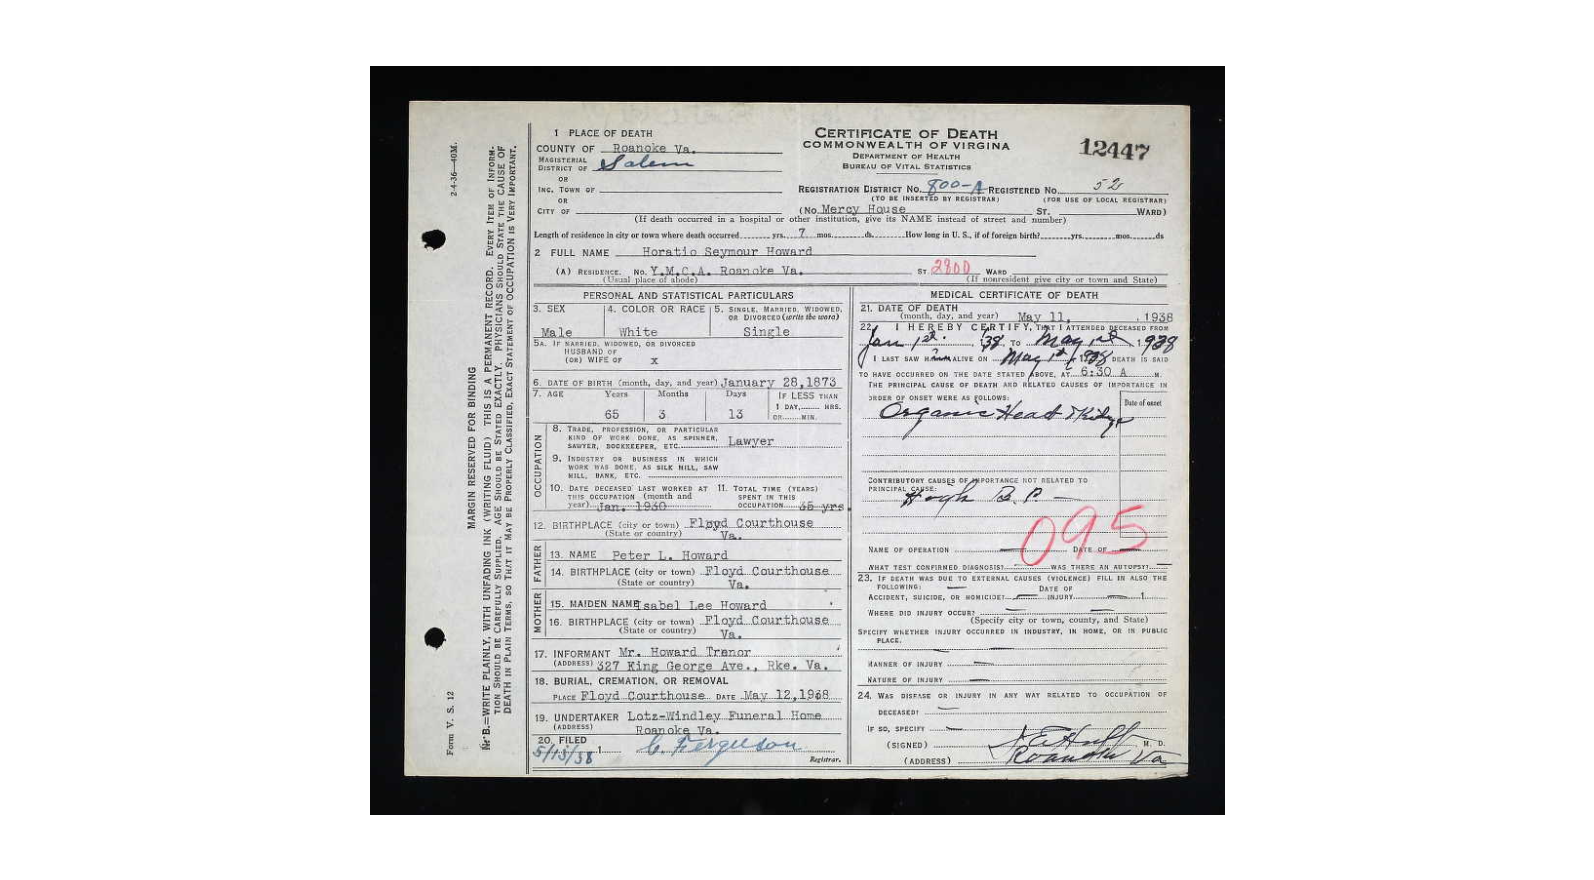 1 PLACE OF DEATH
COUNTY OF Roanoke Va.
MAGISTERIAL
DISTRICT OF Salem
OR
INC. TOWN OF
OR
CITY OF
CERTIFICATE OF DEATH
COMMONWEALTH OF VIRGINIA
DEPARTMENT OF HEALTH
BUREAU OF VITAL STATISTICS
12447
REGISTRATION DISTRICT NO. 800-A REGISTERED NO. 52
(TO BE INSERTED BY REGISTRAR) (FOR USE OF LOCAL REGISTRAR)
(No. Mercy House ST. WARD)
(If death occurred in a hospital or other institution, give its NAME instead of street and number)
Length of residence in city or town where death occurred yrs. 7 mos. ds. How long in U. S., if of foreign birth? yrs. mos. ds
2 FULL NAME Horatio Seymour Howard
(A) RESIDENCE. NO. Y.M.C.A. Roanoke Va. ST. 2800 WARD
(Usual place of abode) (If nonresident give city or town and State)
PERSONAL AND STATISTICAL PARTICULARS
3. SEX Male
4. COLOR OR RACE White
5. SINGLE, MARRIED, WIDOWED,
OR DIVORCED (write the word)
Single
5A. IF MARRIED, WIDOWED, OR DIVORCED
HUSBAND OF
(OR) WIFE OF x
6. DATE OF BIRTH (month, day, and year) January 28,1873
7. AGE Years Months Days IF LESS THAN
1 DAY, HRS.
65 3 13 OR MIN.
OCCUPATION
8. TRADE, PROFESSION, OR PARTICULAR
KIND OF WORK DONE, AS SPINNER,
SAWYER, BOOKKEEPER, ETC. Lawyer
9. INDUSTRY OR BUSINESS IN WHICH
WORK WAS DONE, AS SILK MILL, SAW
MILL, BANK, ETC.
10. DATE DECEASED LAST WORKED AT
THIS OCCUPATION (month and
year) Jan. 1930
11. TOTAL TIME (YEARS)
SPENT IN THIS
OCCUPATION 35 yrs.
12. BIRTHPLACE (city or town) Floyd Courthouse
(State or country) Va.
FATHER
13. NAME Peter L. Howard
14. BIRTHPLACE (city or town) Floyd Courthouse
(State or country) Va.
MOTHER
15. MAIDEN NAME Isabel Lee Howard
16. BIRTHPLACE (city or town) Floyd Courthouse
(State or country) Va.
17. INFORMANT Mr. Howard Trenor
(ADDRESS) 327 King George Ave., Rke. Va.
18. BURIAL, CREMATION, OR REMOVAL
PLACE Floyd Courthouse DATE May 12,1938
19. UNDERTAKER Lotz-Windley Funeral Home
(ADDRESS) Roanoke Va.
20. FILED 5/13/38 1 C. Ferguson
Registrar.
MEDICAL CERTIFICATE OF DEATH
21. DATE OF DEATH
(month, day, and year) May 11, , 1938
22. I HEREBY CERTIFY, THAT I ATTENDED DECEASED FROM
Jan 1st. 1938 TO May 1st 1938
I LAST SAW HIM ALIVE ON May 1st 1938 DEATH IS SAID
TO HAVE OCCURRED ON THE DATE STATED ABOVE, AT 6:30 A M.
THE PRINCIPAL CAUSE OF DEATH AND RELATED CAUSES OF IMPORTANCE IN
ORDER OF ONSET WERE AS FOLLOWS:
Date of onset
Organic
CONTRIBUTORY CAUSES OF IMPORTANCE NOT RELATED TO
PRINCIPAL CAUSE:
High B. P.
095
NAME OF OPERATION DATE OF
WHAT TEST CONFIRMED DIAGNOSIS? WAS THERE AN AUTOPSY?
23. IF DEATH WAS DUE TO EXTERNAL CAUSES (VIOLENCE) FILL IN ALSO THE
FOLLOWING:
DATE OF
ACCIDENT, SUICIDE, OR HOMICIDE? INJURY 1
WHERE DID INJURY OCCUR?
(Specify city or town, county, and State)
SPECIFY WHETHER INJURY OCCURRED IN INDUSTRY, IN HOME, OR IN PUBLIC
PLACE.
MANNER OF INJURY
NATURE OF INJURY
24. WAS DISEASE OR INJURY IN ANY WAY RELATED TO OCCUPATION OF
DECEASED?
IF SO, SPECIFY
(SIGNED) M. D.
(ADDRESS) Roanoke Va
2-4-36—40M.
Form V. S. 12
MARGIN RESERVED FOR BINDING
N. B.—WRITE PLAINLY, WITH UNFADING INK (WRITING FLUID) THIS IS A PERMANENT RECORD. EVERY ITEM OF INFORM-
TION SHOULD BE CAREFULLY SUPPLIED. AGE SHOULD BE STATED EXACTLY. PHYSICIANS SHOULD STATE THE CAUSE OF
DEATH IN PLAIN TERMS, SO THAT IT MAY BE PROPERLY CLASSIFIED, EXACT STATEMENT OF OCCUPATION IS VERY IMPORTANT.